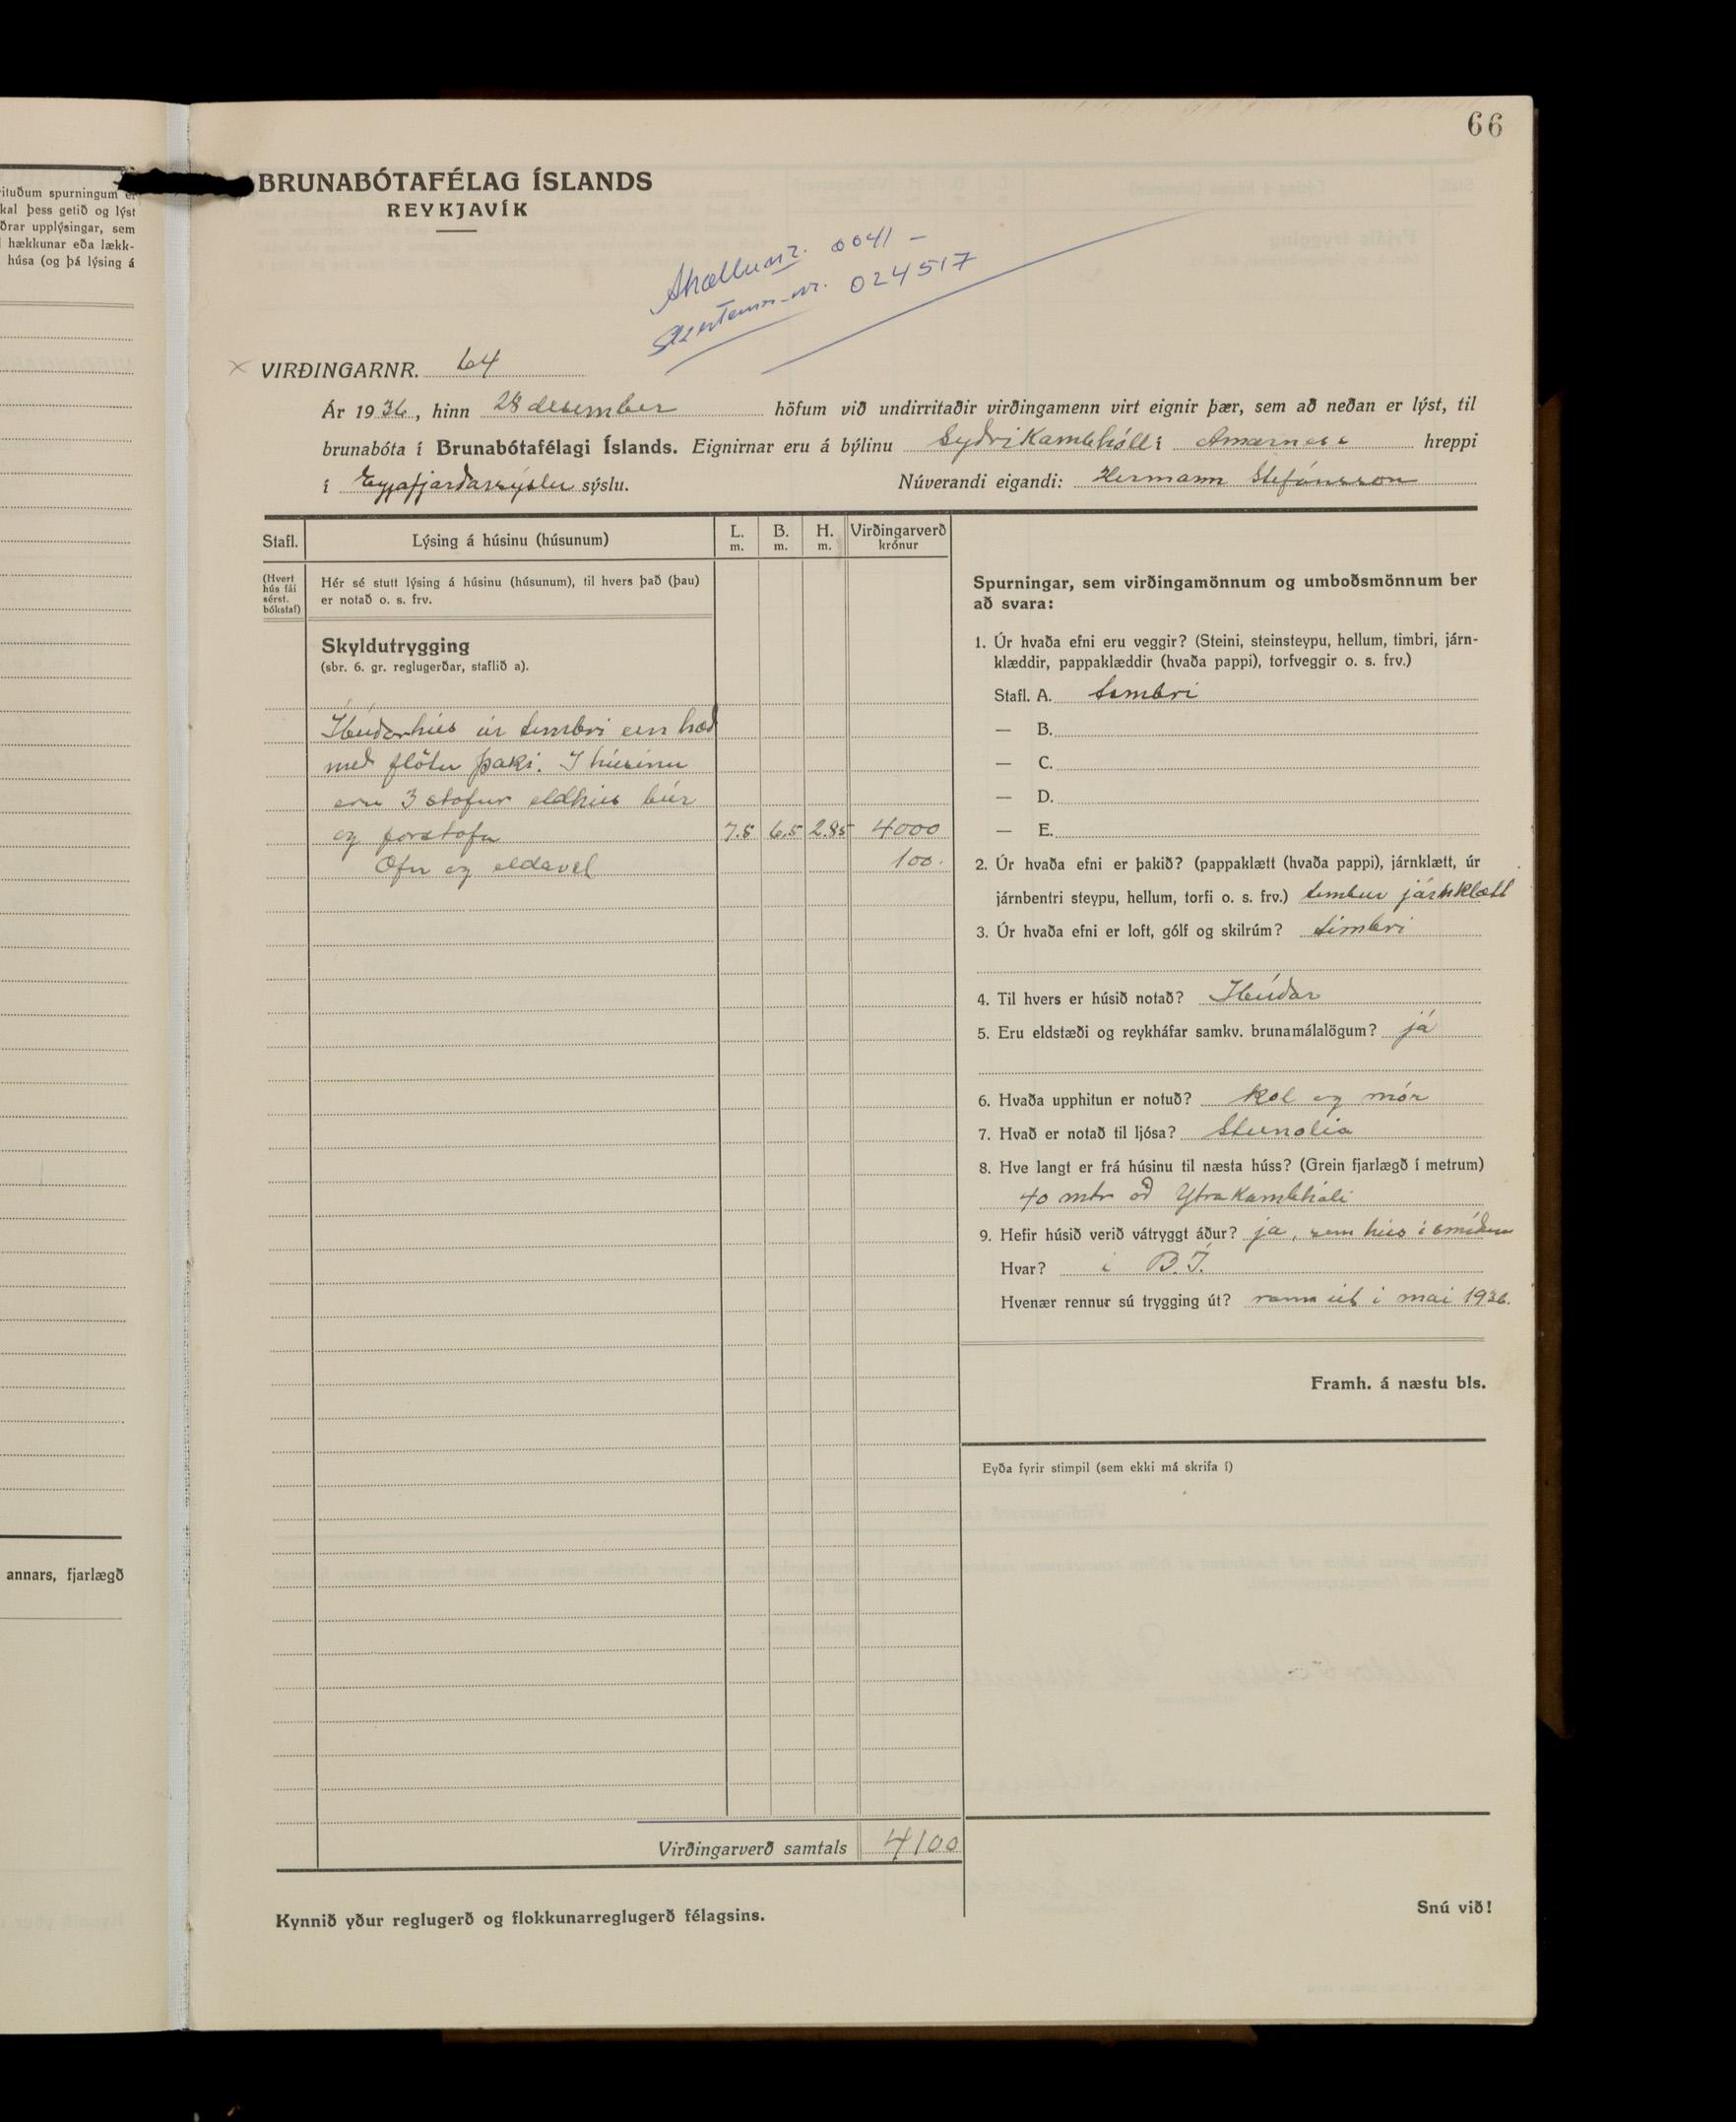 66
rituðum spurningum er
kal þess getið og lýst
ðrar upplýsingar, sem
hækkunar eða lækk-
húsa (og þá lýsing á
annars, fjarlægð
BRUNABÓTAFÉLAG ÍSLANDS
REYKJAVÍK
0041 -
024517
VIRÐINGARNR. 64
Ár 1936, hinn 28 desember höfum við undirritaðir virðingamenn virt eignir þær, sem að neðan er lýst, til
brunabóta í Brunabótafélagi Íslands. Eignirnar eru á býlinu Syðri Kambhóll í Arnarness hreppi
í Eyjafjarðarsýslu sýslu. Núverandi eigandi: Hermann Stefánsson
Stafl. Lýsing á húsinu (húsunum) L. m. B. m. H. m. Virðingarverð krónur
(Hvert hús fái sérst. bókstaf)
Hér sé stutt lýsing á húsinu (húsunum), til hvers það (þau)
er notað o. s. frv.
Skyldutrygging
(sbr. 6. gr. reglugerðar, staflið a).
Íbúðarhús úr timbri ein hæð
með flötu þaki. Í húsinu
eru 3 stofur eldhús búr
og forstofa 7.5 6.5 2.85 4000
Ofn og eldavél 100.
Virðingarverð samtals 4100
Kynnið yður reglugerð og flokkunarreglugerð félagsins.
Spurningar, sem virðingamönnum og umboðsmönnum ber
að svara:
1. Úr hvaða efni eru veggir? (Steini, steinsteypu, hellum, timbri, járn-
klæddir, pappaklæddir (hvaða pappi), torfveggir o. s. frv.)
Stafl. A. timbri
— B.
— C.
— D.
— E.
2. Úr hvaða efni er þakið? (pappaklætt (hvaða pappi), járnklætt, úr
járnbentri steypu, hellum, torfi o. s. frv.) timbur járnklætt
3. Úr hvaða efni er loft, gólf og skilrúm? timbri
4. Til hvers er húsið notað? Íbúðar
5. Eru eldstæði og reykháfar samkv. brunamálalögum? já
6. Hvaða upphitun er notuð? kol og mór
7. Hvað er notað til ljósa? Steinolía
8. Hve langt er frá húsinu til næsta húss? (Grein fjarlægð í metrum)
40 mtr að Ytra Kambhóli
9. Hefir húsið verið vátryggt áður? já, sem hús í smíðum
Hvar? í B.Í.
Hvenær rennur sú trygging út? rann út í maí 1936.
Framh. á næstu bls.
Eyða fyrir stimpil (sem ekki má skrifa í)
Snú við!